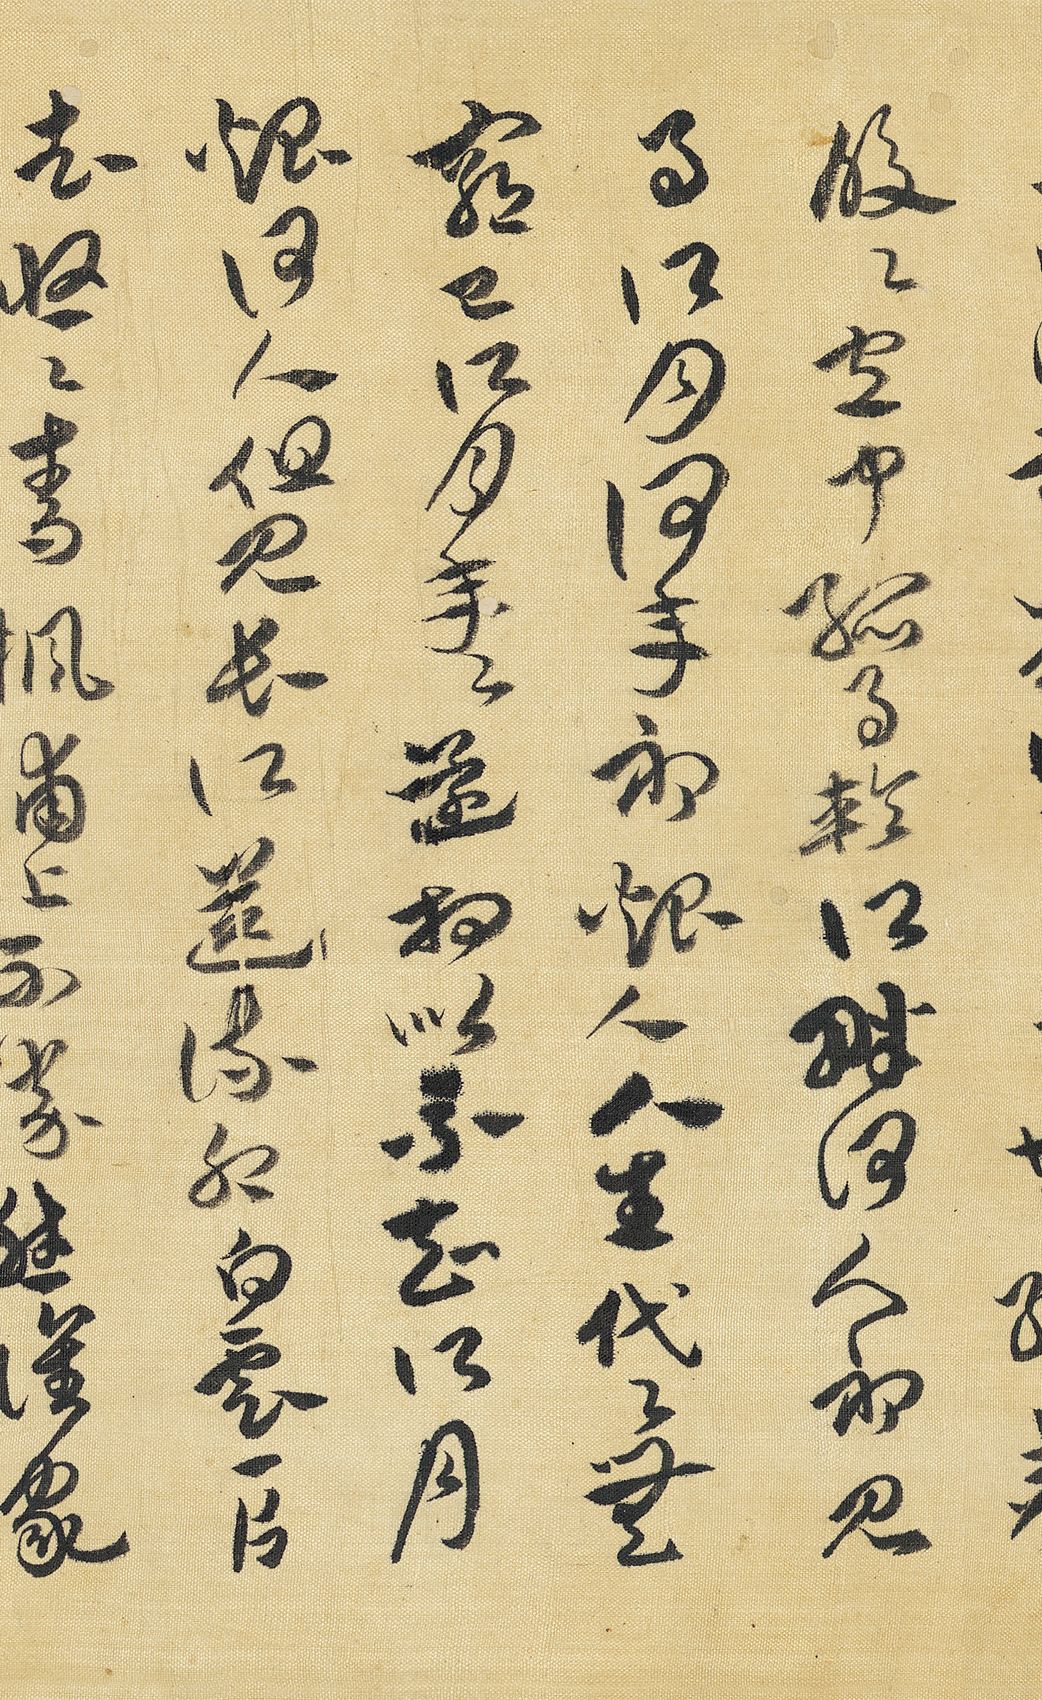 皎〻空中孤月輪江畔何人初見
月江月何年初照人人生代〻無
窮已江月年〻相似不知江月
照何人但見長江送流水白雲一片
去悠〻青楓浦上不勝愁誰家